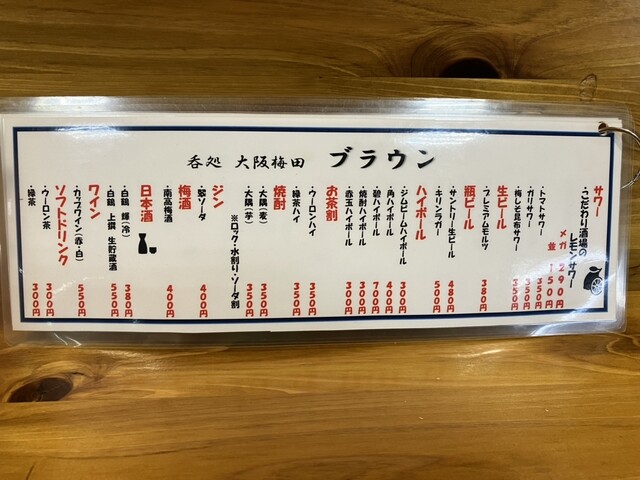 呑処 大阪梅田 ブラウン
サワー
・こだわり酒場の
レモンサワー
メガ 290円
並 150円
・トマトサワー 350円
・ガリサワー 350円
・梅しそ昆布サワー 350円
生ビール
・プレミアムモルツ 380円
瓶ビール
・サントリー生ビール 480円
・キリンラガー 500円
ハイボール
・ジムビームハイボール 300円
・角ハイボール 400円
・碧ハイボール 700円
・焼酎ハイボール 300円
・赤玉ハイボール 300円
お茶割
・ウーロンハイ 350円
・緑茶ハイ 350円
焼酎
・大隅(麦) 350円
・大隅(芋) 350円
※ロック・水割り・ソーダ割
ジン
・翠ソーダ 400円
梅酒
・南高梅酒 400円
日本酒
・白鶴 輝(冷) 380円
・白鶴 上撰 生貯蔵酒 550円
ワイン
・カップワイン(赤・白) 550円
ソフトドリンク
・ウーロン茶 300円
・緑茶 300円